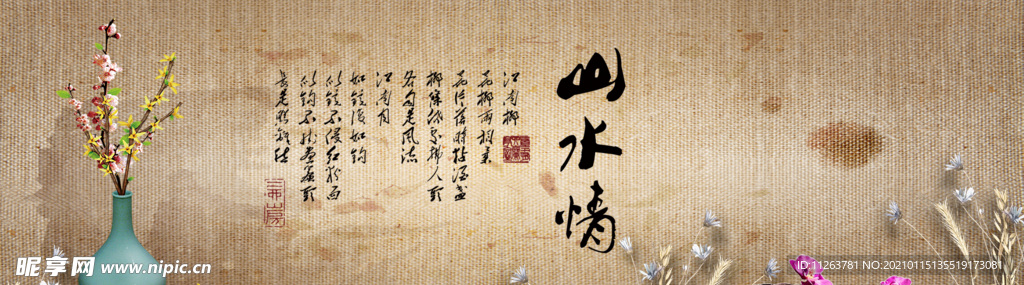 山水情
江南柳
花柳两相柔
花片落时黏酒盏
柳条低处拂人头
各自是风流
江南月
如镜复如钩
似镜不侵红粉面
似钩不挂画帘头
长是照离愁
昵享网 www.nipic.cn
ID:11263781 NO:20210115135519173081